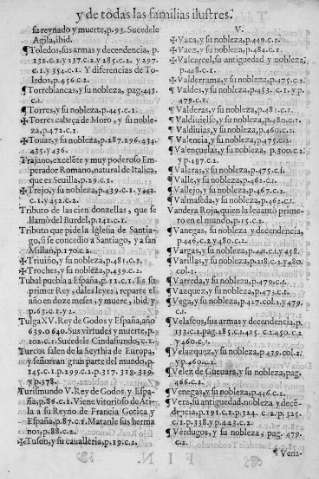 y de todas las familias ilustres.
su reynado y muerte, p.93. Sucedele
Agila, ibid.
¶ Toledos, sus armas y decendencia, p.
232.c.2.y 137.c.2 y 285.c.2. y 297.
c.1.y 354.c.1. Y diferencias de To-
ledos, p.456.c.1.
¶ Torrebianca, y su nobleza, pag.445.
c.1.
¶ Torres, y su nobleza, p.445.c.1.
✠ Torres cabeça de Moro, y su noble-
za, p.472.c.1.
✠ Touar, y su nobleza, p.287.296.434.
435.y 436.
Trajano, excelēte y muy poderoso Em-
perador Romano, natural de Italica,
que es Seuilla, p.29.c.1.
✠ Trejo, y su nobleza, p.439.c.1. y 442.
c.1. y 452.c.2.
Tributo de las cien donzellas, que se
llamò del Burdel, p.141.c.1.
Tributo que pide la Iglesia de Santia-
go, si se concedio a Santiago, y a san
Millan, p.170.c.2.
✠ Triuiño, y su nobleza, p.481.c.1.
✠ Troches, y su nobleza, p.459.c.2.
Tubal puebla a España, p.11.c.1. Es su
primer Rey, dales leyes, reparte el
año en doze meses, y muere, ibid. y
p.65.c.1.y 2.
Tulga XV. Rey de Godos y España, año
639.o 640. Sus virtudes y muerte, p.
102.c.1. Sucedele Cindasuindo, c.2.
Turcos salen de la Scythia de Europa,
y señorean gran parte del mundo, p.
145.c.1.p.299.c.1.p.317. 318. 339.
y p.378.
Turismundo V. Rey de Godos y Espa-
ña, p.86.c.1. Viene vitorioso de Ati-
la a su Reyno de Francia Gotica, y
España, p.87.c.1. Matanle sus herma
nos, p.88.c.2.
✠ Tuson, y su caualleria, p.19.c.2.
V.
✠ Vaca, y su nobleza, p.449.c.1.
✠ Vaez, y su nobleza, p.482.c.1.
✠ Valcarcel, su antiguedad y nobleza,
p.468.c.1.
✠ Valderrama, y su nobleza, p.475.c.1.
¶ Valdes, y su nobleza, p.453. c.1. y p.
479.c.1.
¶ Valderas, y su nobleza, p.481.c.1.
✠ Valdiuielso, y su nobleza, p.480.c.1.
¶ Valdiuias, y su nobleza, p.460.c.1.
✠ Valencia, y su nobleza, p.475.c.1.
✠ Valençuelas, y su nobleza, p.300.c.1.
y p.437.c.2.
¶ Valeras, y su nobleza, p.475.c.1.
✠ Valle, y su nobleza, p.462.c.1.
¶ Vallejo, y su nobleza, p.467.c.1.
¶ Valmaseda, y su nobleza, p.462.c.1.
Vandera Roja, quien la leuantò primero
en el mundo, p.10.c.2.
¶ Vanegas, su nobleza y decendencia,
p.446.c.2.y 480.c.2.
✠ Vargas, y su nobleza, p.458.c.2.
¶ Varillas, y su nobleza, p.218.c.1.y 480.
col.1.
¶ Varreda, y su nobleza, p.479.c.1.
✠ Vazquez, y su nobleza, p.457.c.1.
✠ Vega, y su nobleza, p.417.col.1.y 479.
c.1.
✠ Velascos, sus armas y decendencia, p.
335.c.1.pag.285.c.1.425. c.1.450.c.1.
y 460.c.1.
¶ Velazquez, y su nobleza, p.479.col.2.
y p.460.c.1.
¶ Velez de Gueuara, y su nobleza, pag.
465.c.2.
¶ Venegas, y su nobleza, p.446.c.2.
¶ Vera, su antiguedad, nobleza y dece-
dencia, p.191.c.1.p.324. c.2. p.325.
c.1.p.338.y p.443.c.2.
¶ Verdugos, y su nobleza, pag. 479.
c.2.
¶ Vera-